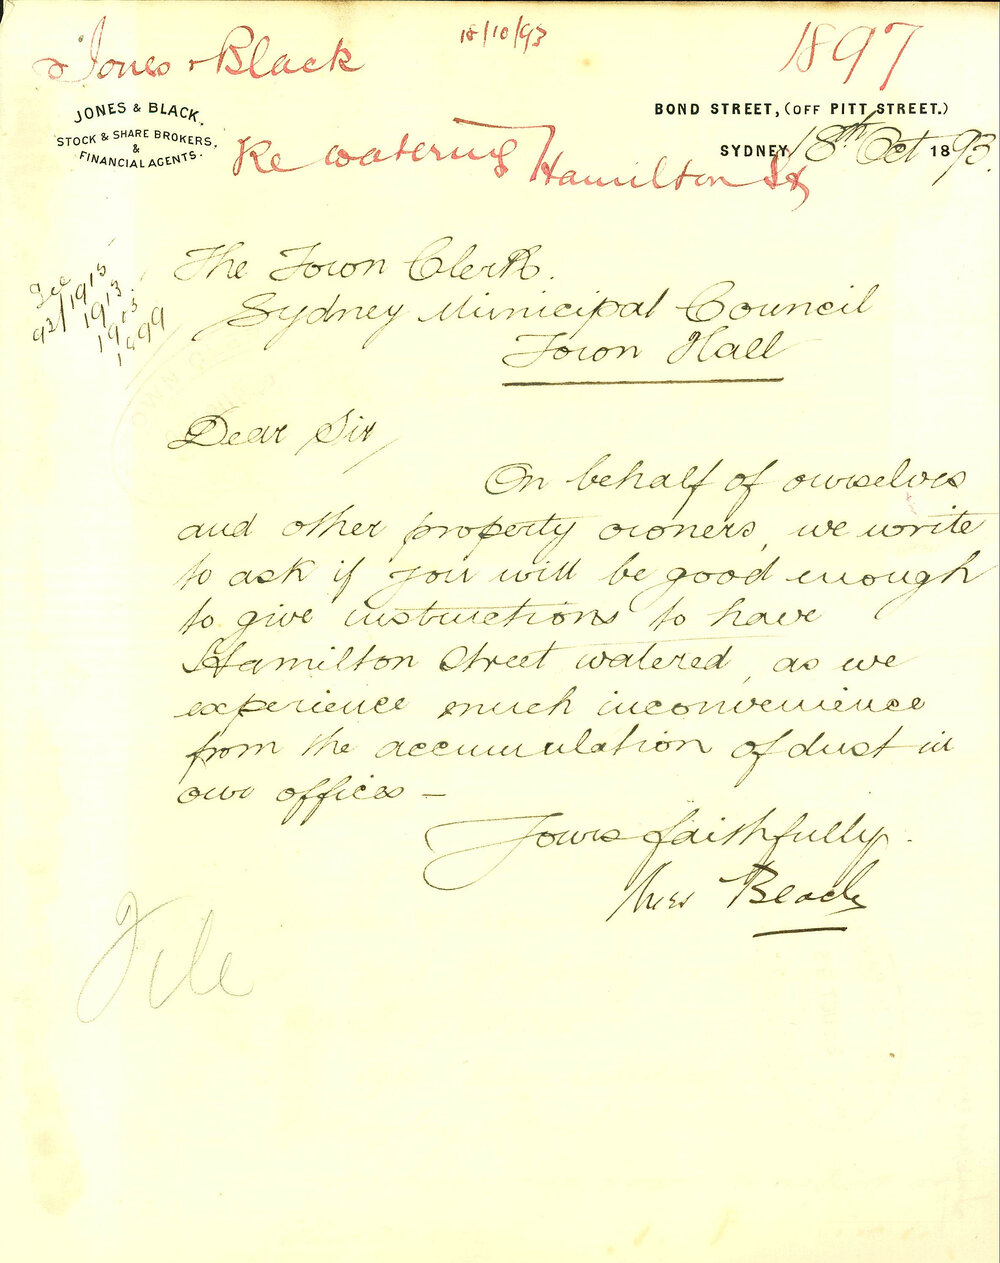 18/10/93
Jones & Black
1897
JONES & BLACK,
STOCK & SHARE BROKERS,
&
FINANCIAL AGENTS.
BOND STREET, (OFF PITT STREET.)
SYDNEY, 18th Oct 1893.
Re watering Hamilton St
92/1915
1913
1899
The Town Clerk.
Sydney Municipal Council
Town Hall
Dear Sir,
On behalf of ourselves
and other property owners, we write
to ask if you will be good enough
to give instructions to have
Hamilton Street watered, as we
experience much inconvenience
from the accumulation of dust in
our offices —
Yours faithfully.
Black
File